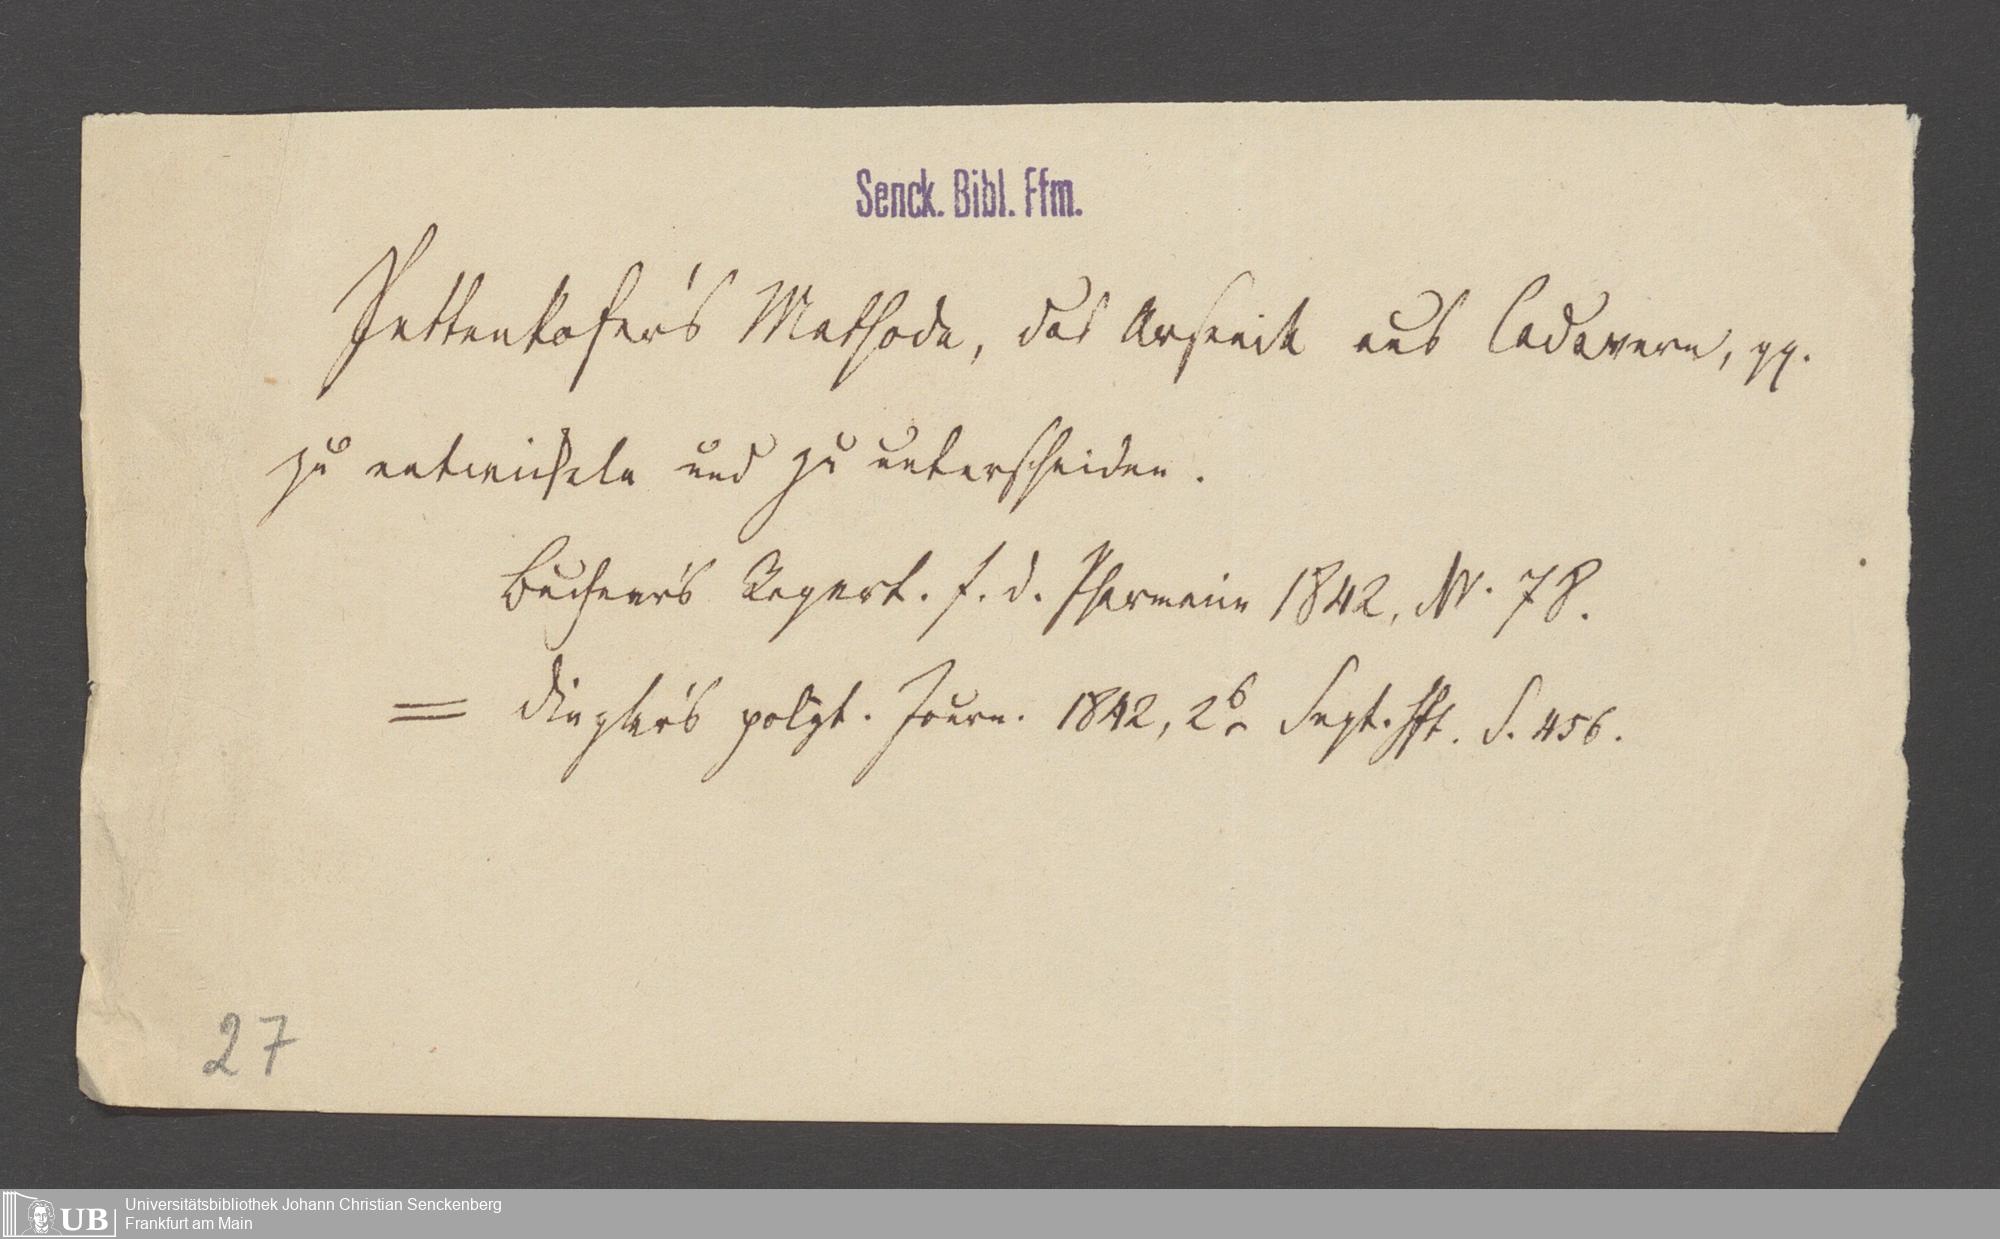 Senck. Bibl. Ffm.
Pettenkofer's Methode, das Arsenik aus Cadavern, pp.
zu entwickeln und zu unterscheiden.
Buchner's Repert. f. d. Pharmacie 1842, Nr. 78.
= Dingler's polyt. Journ. 1842, 2s Sept. Hft. S. 456.
27
UB
Universitätsbibliothek Johann Christian Senckenberg
Frankfurt am Main